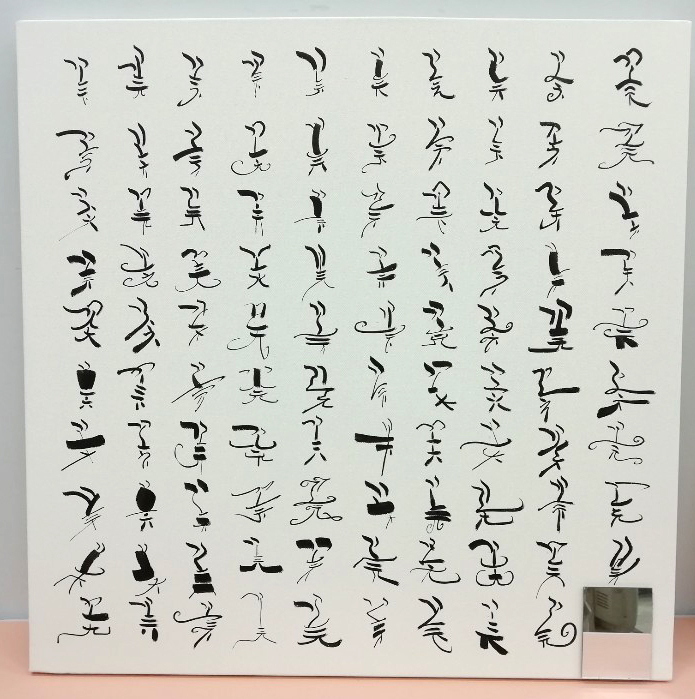 꽃 꽃 꽃 꽃 꽃 꽃 꽃 꽃 꽃 꽃
꽃 꽃 꽃 꽃 꽃 꽃 꽃 꽃 꽃 꽃
꽃 꽃 꽃 꽃 꽃 꽃 꽃 꽃 꽃 꽃
꽃 꽃 꽃 꽃 꽃 꽃 꽃 꽃 꽃 꽃
꽃 꽃 꽃 꽃 꽃 꽃 꽃 꽃 꽃 꽃
꽃 꽃 꽃 꽃 꽃 꽃 꽃 꽃 꽃 꽃
꽃 꽃 꽃 꽃 꽃 꽃 꽃 꽃 꽃 꽃
꽃 꽃 꽃 꽃 꽃 꽃 꽃 꽃 꽃 꽃
꽃 꽃 꽃 꽃 꽃 꽃 꽃 꽃 꽃 꽃
꽃 꽃 꽃 꽃 꽃 꽃 꽃 꽃 꽃